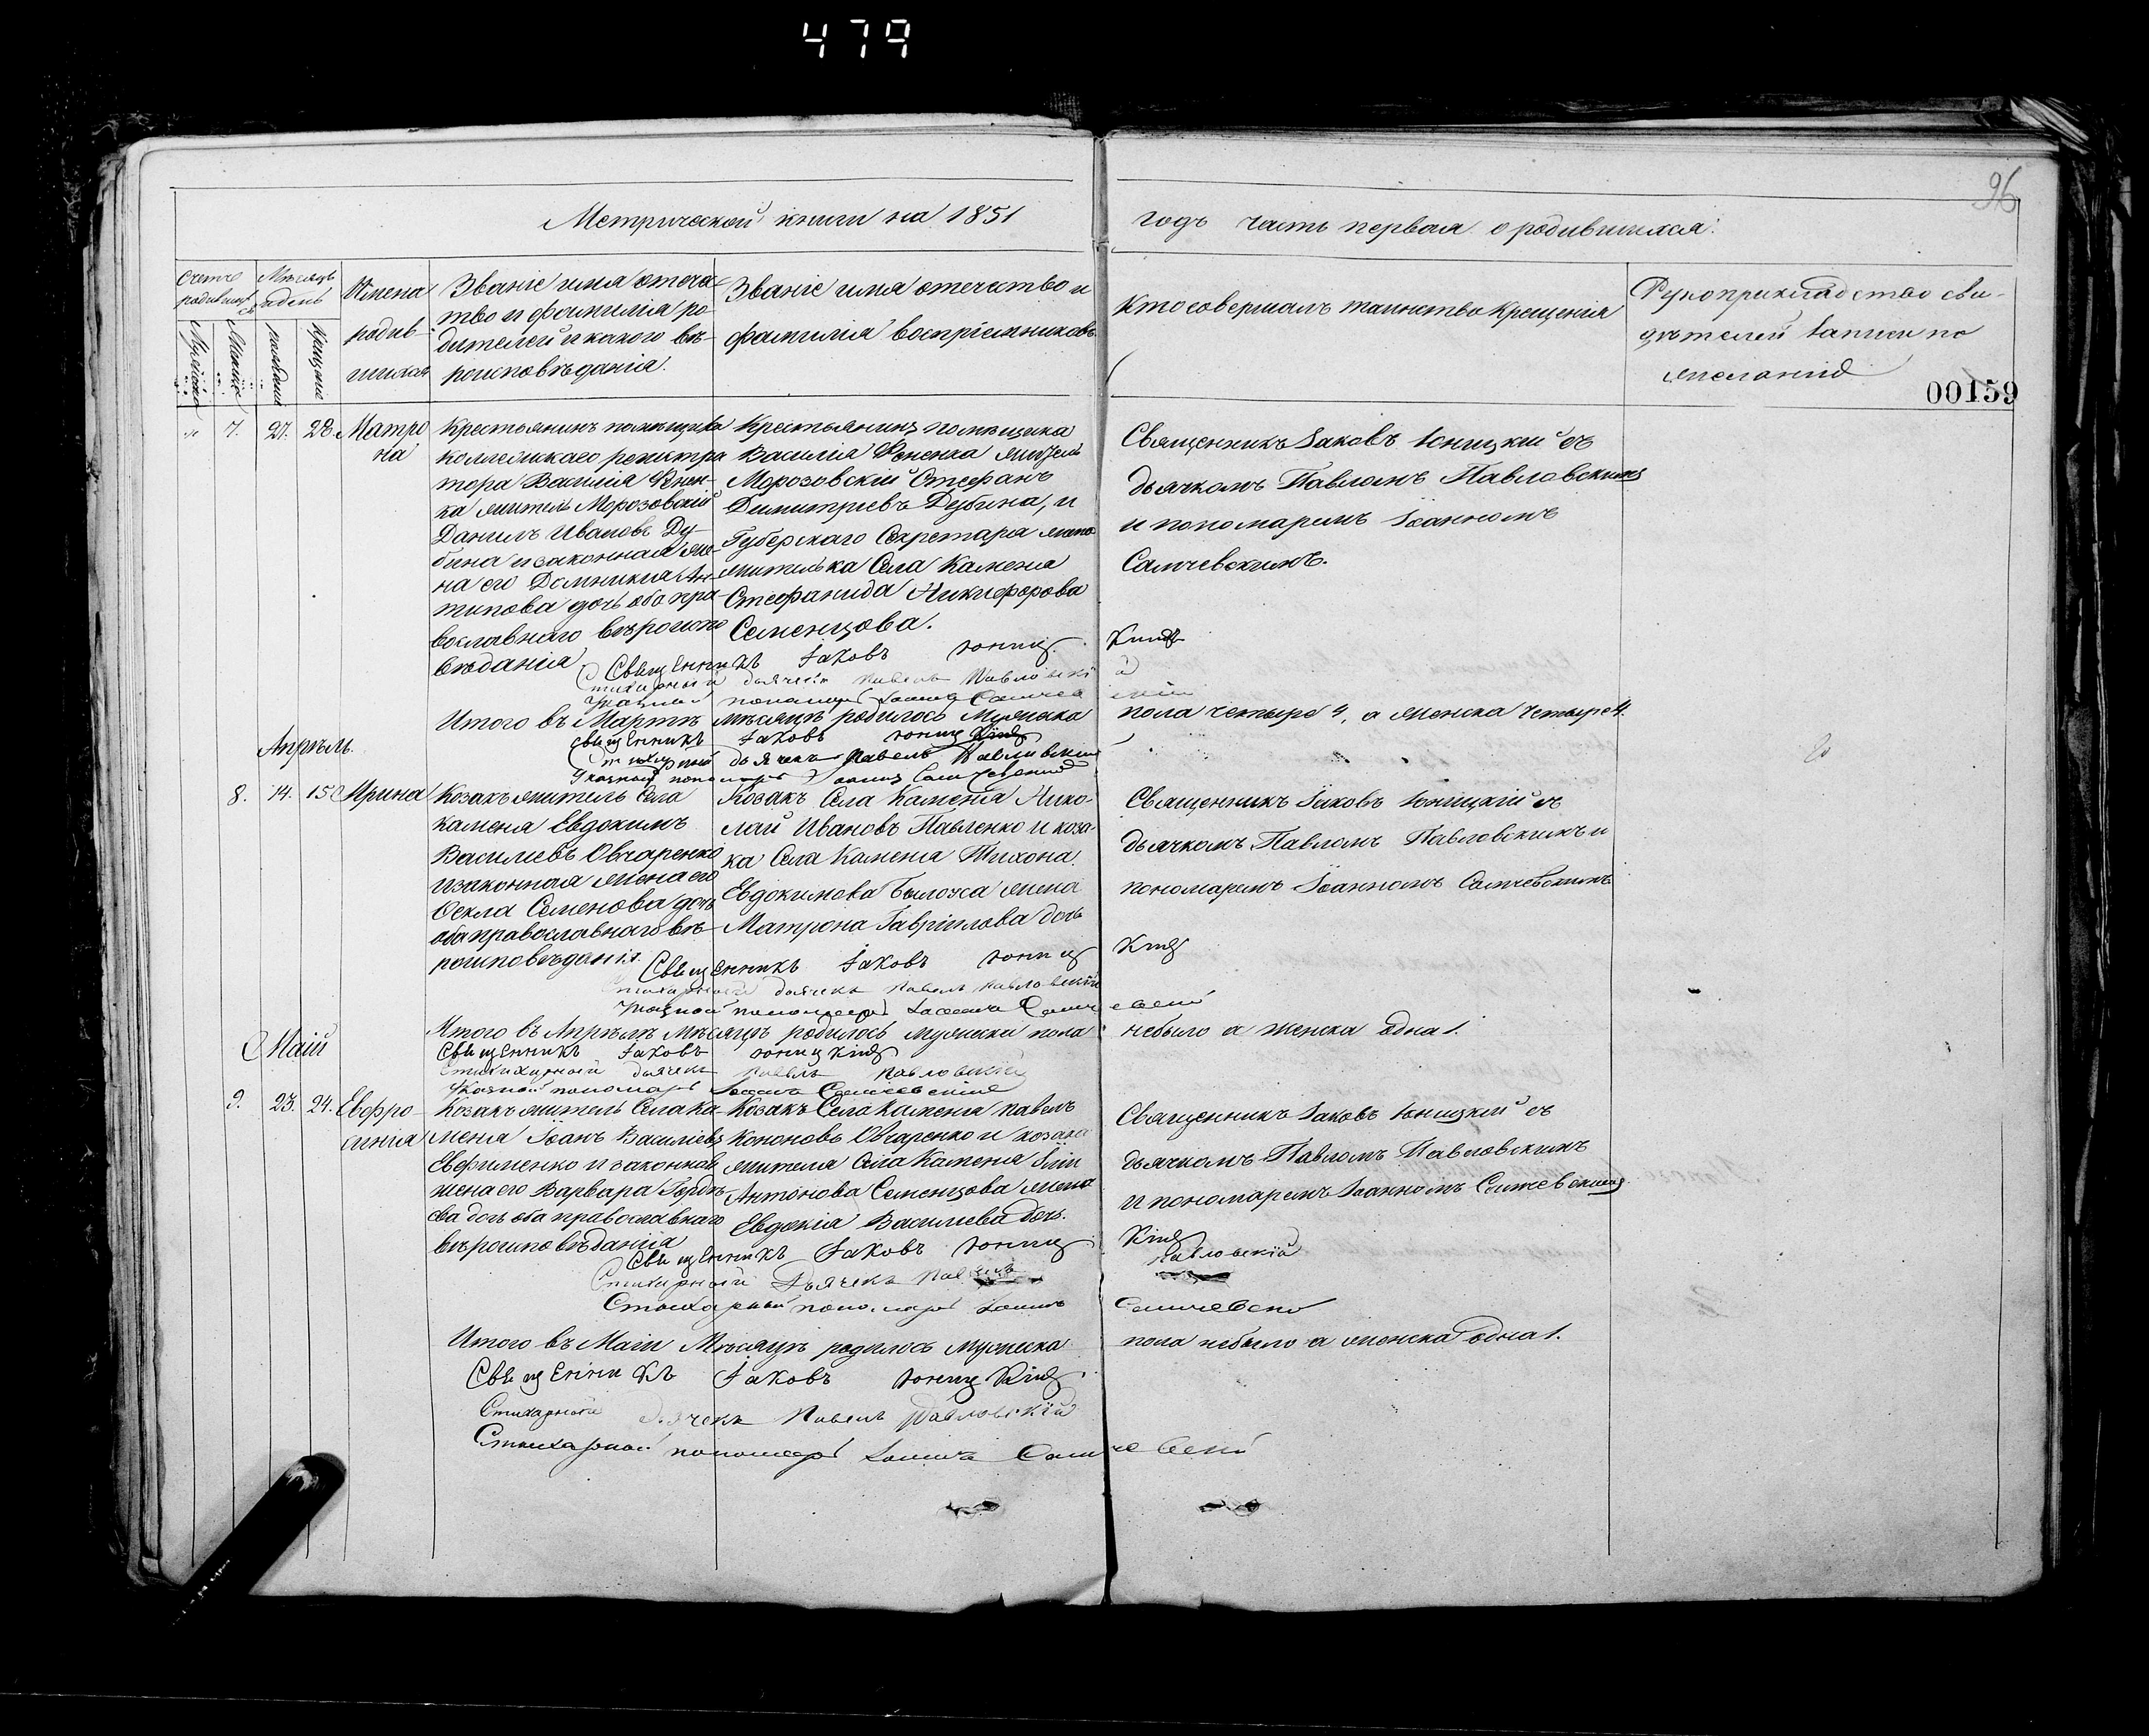 479
96
Метрической книги на 1851 годъ часть первая о родившихся.
Счетъ родившихся
Мѣсяцъ и день
Имена родившихся
Званіе имя отечество и фамилія родителей и какого вѣроисповѣданія.
Званіе имя отечество и фамилія воспріемниковъ.
Кто совершалъ таинство Крещенія
Рукоприкладство свидѣтелей записи по желанію
Мужеска
Женска
рожденія
Крещенія
00159
7. 27. 28. Матрона
Крестьянинъ помѣщика
коллежскаго регистра
тора Василія Фенен-
ка житель Морозовскій
Данилъ Ивановъ Ду-
бина и законная же-
на его Домникія Ан-
типова дочь оба пра-
вославнаго вѣроиспо
вѣданія.
Крестьянинъ помѣщика
Василія Фененка житель
Морозовскій Стефанъ
Димитріевъ Дубина, и
Губерскаго Секретаря
жителька Села Каменя
Стефанида Никифорова
Семенцова.
Священникъ Іаковъ Юницкій съ
дьячкомъ Павломъ Павловскимъ
и пономаремъ Іоанномъ
Самчевскимъ.
Священникъ Іаковъ Юницкій
Стихарный дьячекъ Павелъ Павловскій
Указный пономарь Іоаннъ Самчевскій
Итого въ Мартѣ мѣсяцѣ родилось мужска пола четыре 4, а женска четыре 4.
Священникъ Іаковъ Юницкій
Стихарный дьячекъ Павелъ Павловскій
Указный пономарь Іоаннъ Самчевскій
Апрѣль.
8. 14. 15. Ирина
Козакъ житель Села
Каменя Евдокимъ
Василіевъ Овчаренко
и законная жена его
Фекла Семенова дочь
оба православнаго вѣ-
роисповѣданія.
Козакъ Села Каменя Нико-
лай Ивановъ Павленко и коза-
ка Села Каменя Тихона
Евдокимова Жена
Матрона Гавріилова дочь
Священникъ Іаковъ Юницкій съ
дьячкомъ Павломъ Павловскимъ и
пономаремъ Іоанномъ Самчевскимъ
Священникъ Іаковъ Юницкій
Стихарный дьячекъ Павелъ Павловскій
Указной пономарь Іоаннъ Самчевскій
Итого въ Апрѣлѣ Мѣсяцѣ родилось мужеска пола небыло а женска одна 1.
Священникъ Іаковъ Юницкій
Стихарный дьячекъ Павелъ Павловскій
Указной пономарь Іоаннъ Самчевскій
Маій
9. 23. 24. Евфросинія
Козакъ житель Села Ка-
меня Іоанъ Василіевъ
Евфименко и законная
жена его Варвара Гордѣ-
ева дочь оба православнаго
вѣроисповѣданія
Козакъ Села Каменя Павелъ
Кононовъ Овчаренко и козака
жителя Села Каменя Іліи
Антонова Семенцова жена
Евдокія Василіева дочь.
Священникъ Іаковъ Юницкій съ
дьячкомъ Павломъ Павловскимъ
и пономаремъ Іоанномъ Самчевскимъ
Священникъ Іаковъ Юницкій
Стихарный Дьячекъ Павелъ Павловскій
Стихарный пономарь Іоаннъ Самчевскій
Итого въ Маіи Мѣсяцѣ родилось мужеска пола небыло а женска одна 1.
Священникъ Іаковъ Юницкій
Стихарный дьячекъ Павелъ Павловскій
Стихарный пономарь Іоаннъ Самчевскій